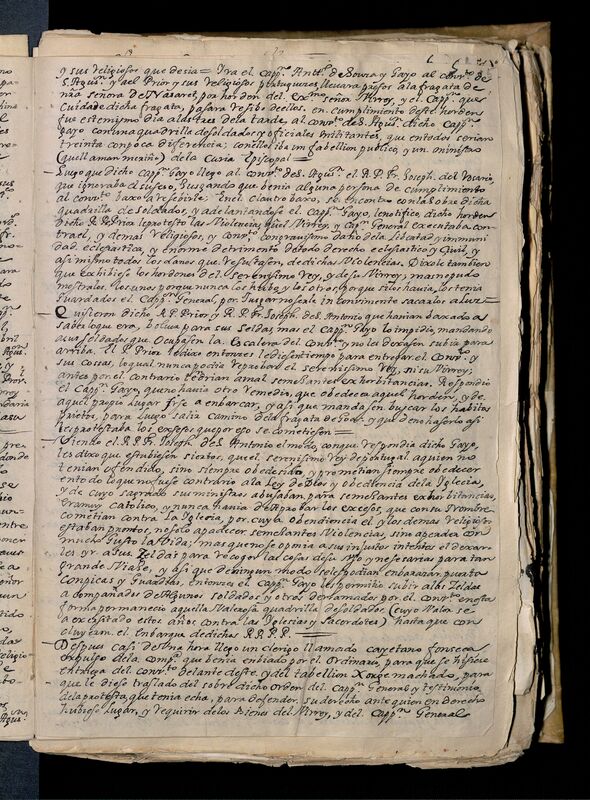 y sus religiosos que desia = Yra el Capp.n Ant.o de Souza y Gayo al conv.to de
S. Agus.n y ael Prior y sus religiosos portuguezes llevara presos ala fragata de
n̄ra señora de Nazaret, por horden del. Ex.mo señor Virrey, y el Capp.n que
Cuida de dicha fragata, pasara resibo dellos. en cumplimiento deste horden
fue este mismo dia alas tres dela tarde, al conv.to de S. Agus.n dicho Capp.n
Gayo con una quadrilla de soldados y oficiales militantes, que en todos serian
treinta con poca diferencia; con ellos iba un tabellion publico, y un ministro
(que llaman meriño) dela Curia Episcopal =
Luego que dicho Capp.n Gayo llego al conv.to de S. Agus.n el R. P. Fr. Joseph. del Rosario,
que ignoraba el suseso, Juzgando que benia alguna persona de cumplimiento
al conv.to baxo a resebirle. En el claustro baxo, se encontro con la sobre dicha
quadrilla de soldados, y adelantandose el Capp.n Gayo, le notifico dicho horden
Dicho R. P. Prior le protesto las Violencias, quel Virrey, y Cap.n General executaba con-
tra el, y demas religiosos, y Conv.to con gravissimo daño dela libertad y immuni
dad. eclesiastica, y enorme detrimento de todo derecho eclesiastico y Civil, y
asi mismo todos los danos que. resultasen, de dichas Violencias. Dixole tambien
que exhibiese los hordenes del. Serenisimo Rey, y de su Virrey; mas no pudo
mostralos. los unos porque nunca los hubo, y los otros, porque si los havia, los tenia
Guardados el Capp.n General, por Juzgar no serle inconvimente sacarlos a luz =
Quisieron dicho, R. P. Prior y R. P. Fr. Joseph. de S. Antonio que havian baxado a
saber loque era, bolver para sus seldas, mas el Capp.n Gayo lo impidio, mandando
a sus soldados que. Ocupasen la. Escalera del. Conv.to y no les dexasen subir para
arriba. El P. Prior le dixo entonces le diese tiempo para entregar el Conv.to y
sus cosas, loqual nunca podia reprobar el serenissimo Rey, ni su Virrey;
antes por el contrario tedrian amal semejantes exhorbitancias. Respondio
el Capp.n Gayo, que no havia otro remedio, que obedecer aquel horden, y de
aquel propio lugar irse a embarcar, y asi que mandasen buscar los habitos
prietos, para luego salir camino dela fragata de Goa; y que deno haserlo asi
les protestaba los exsesos que por eso se cometiesen =
Viendo el R. P. Fr. Joseph de S. Antonio el modo, con que respondia dicho Gayo,
les dixo que estubiesen siertos, que el. serenisimo Rey de portugal aquien no
tenian ofendido, sino siempre obedecido, y prometian siempre obedecer
en todo loque no fuese contrario a la Ley de Dios y obediencia dela Iglecia,
y de cuyo sagrado sus ministros abusaban para semejantes exhorbitancias,
Era muy catolico, y nunca havia de aprobar los exesos, que con su Nombre
cometian contra la Iglecia, por cuya obendiencia el y los demas religiosos
estaban promtos, no solo a padecer semejantes Violencias, sino a perder con
mucho Gusto la Vida; mas que no se oponia a sus injustos intentos el dexar-
les yr a sus. Seldas para recoger las cosas de su Uso y nesesarias para tan
grande Viaje, y asi que de ningun modo sele podian enbarazar puerta
Conpicas y Guardias, entonces el Capp.n Gayo les permitio subir alas Seldas
acompañados de algunos soldados y otros derramados por el. conv.to en esta
forma permanecio aquella Valerosa quadrilla de soldados, (cuyo Valor se
a exersitado estos años contra las Iglecias y Sacerdotes) hasta que con
cluyeron. el Embarque dedichos R. R. P. P. =
Despues casi de una hora llego un clerigo llamado cayetano fonseca
expulso dela comp.a que benia enbiado por el Ordinario, para que se hisiese
entrega del conv.to delante deste, y del tabellion Xorge machado, para
que le diese traslado del sobre dicho Orden del Capp.n General y testimonio
dela protesta, que tenia echa, para defender su derecho ante quien en Derecho
hubiese lugar, y requirir delos bienes del Virrey, y del Capp.n General